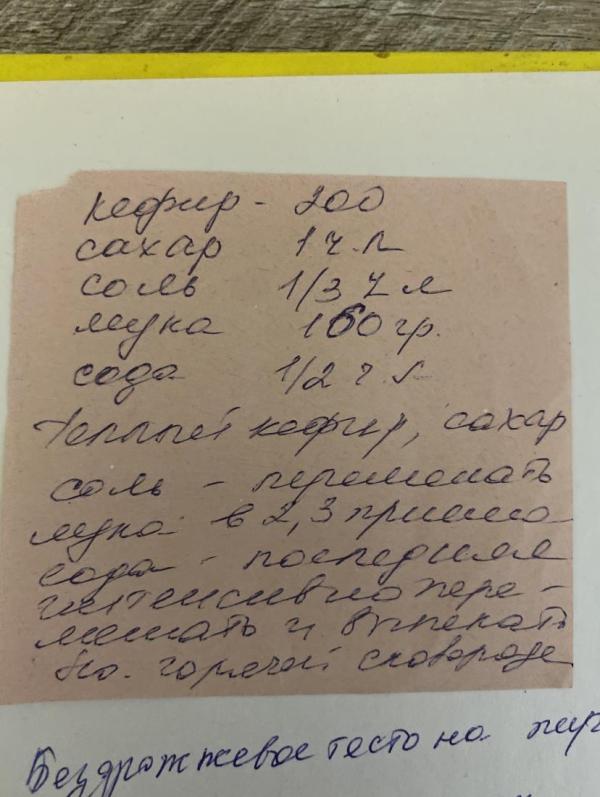 кефир - 200
сахар 1 ч.л
соль 1/3 ч л
мука 160 гр.
сода 1/2 ч.л
Теплый кефир, сахар
соль - перемешать
мука в 2,3 приема
сода - последняя
интенсивно пере-
мешать и выпекать
на горячей сковороде
Бездрожжевое тесто на